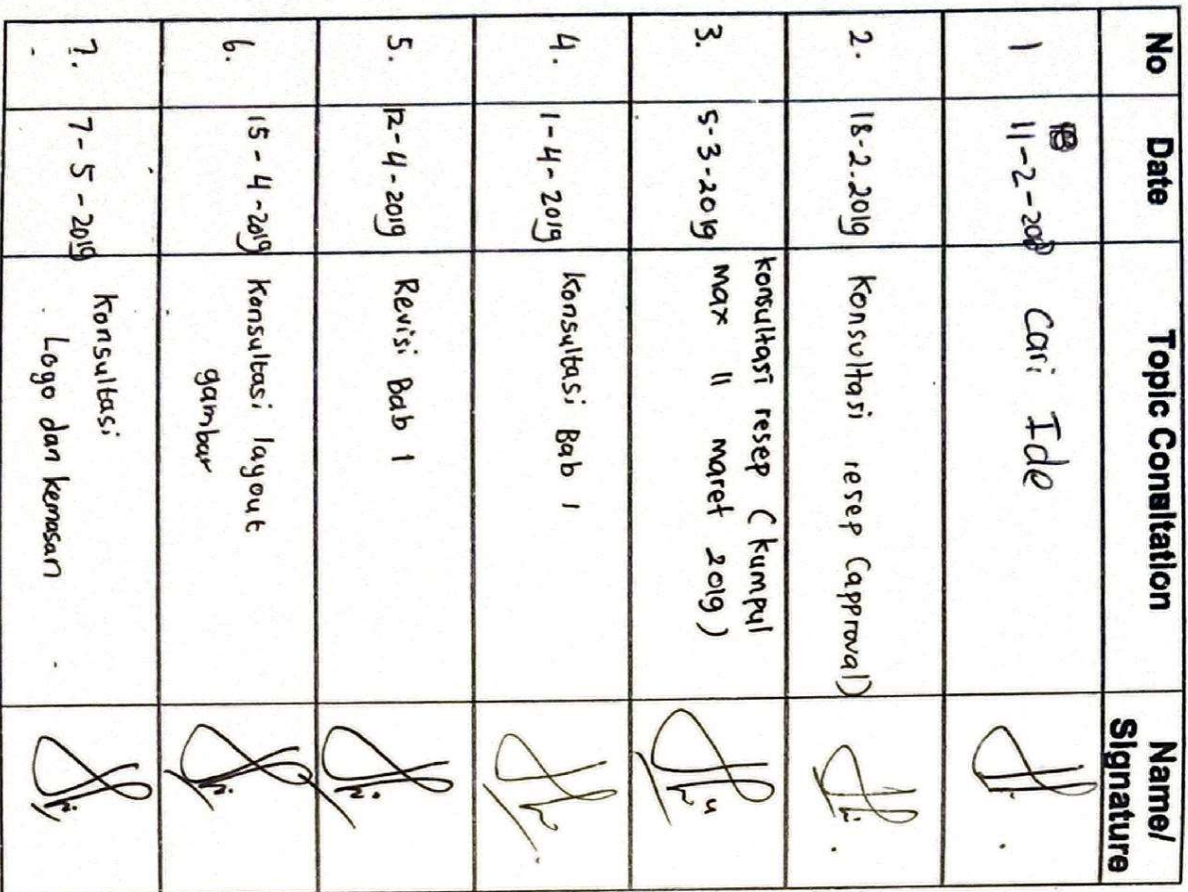 No Date Topic Consultation Name/
Signature
1 11-2- Cari Ide
2. 18-2.2019 Konsultasi resep (approval)
3. 5-3-2019 konsultasi resep (kumpul
max 11 maret 2019)
4. 1-4-2019 Konsultasi Bab 1
5. 12-4-2019 Revisi Bab 1
6. 15-4-2019 Konsultasi layout
gambar
7. 7-5-2019 Konsultasi
Logo dan kemasan